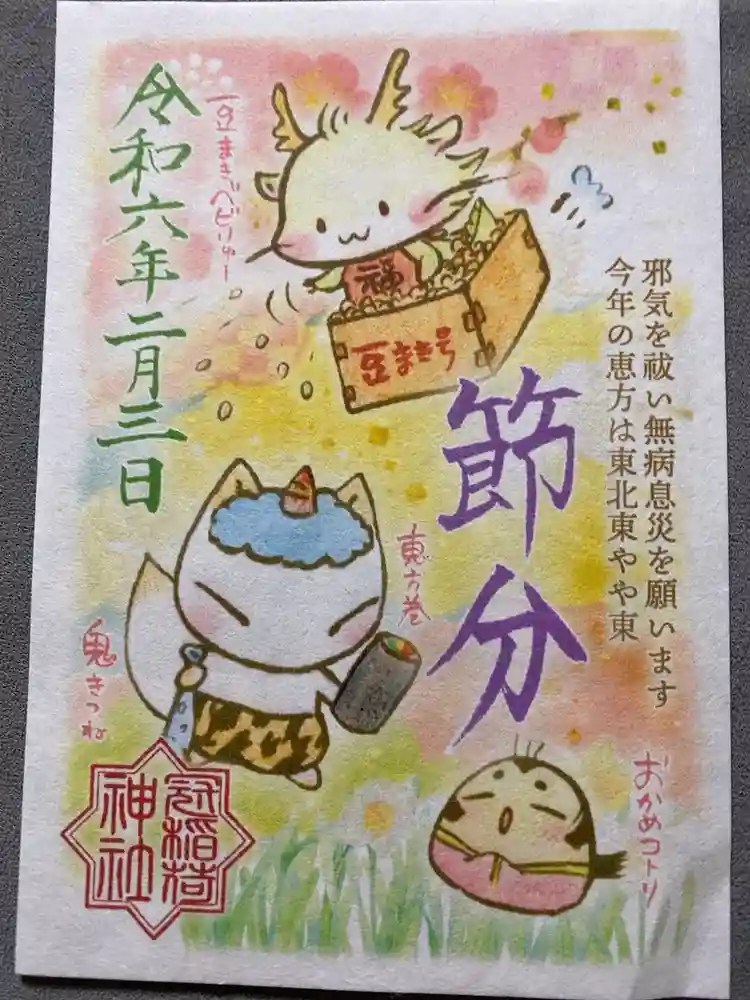 邪気を祓い無病息災を願います
今年の恵方は東北東やや東
節分
令和六年二月三日
豆まきベビりゅー
福
豆まき号
恵方巻
鬼きつね
おかめコトリ
冠稲荷
神社